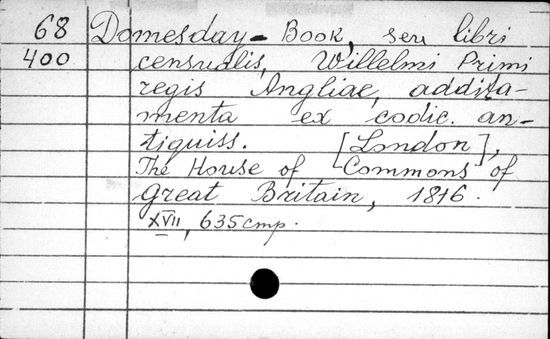 68 Domesday-Book, seu libri
400 censualis, Willelmi Primi
regis Angliae, addita-
menta ex codic. an-
tiquiss. [London],
The House of Commons of
Great Britain, 1816.
XVII, 635 стр.